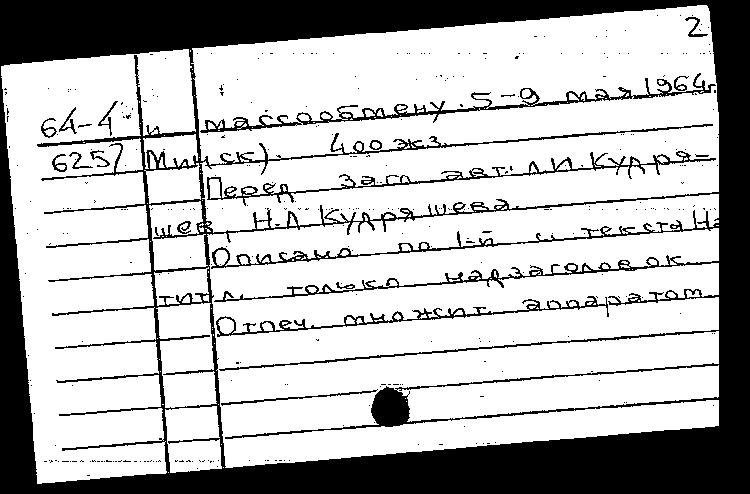 2
64-4 и массообмену. 5-9 мая 1964г.
6257 Минск). 400 экз.
Перед загл авт.: Л.И. Кудря=
шев, Н.Л Кудряшева.
Описано по 1-й с. текста На
тит л. только надзаголовок.
Отпеч. множит. аппаратом.